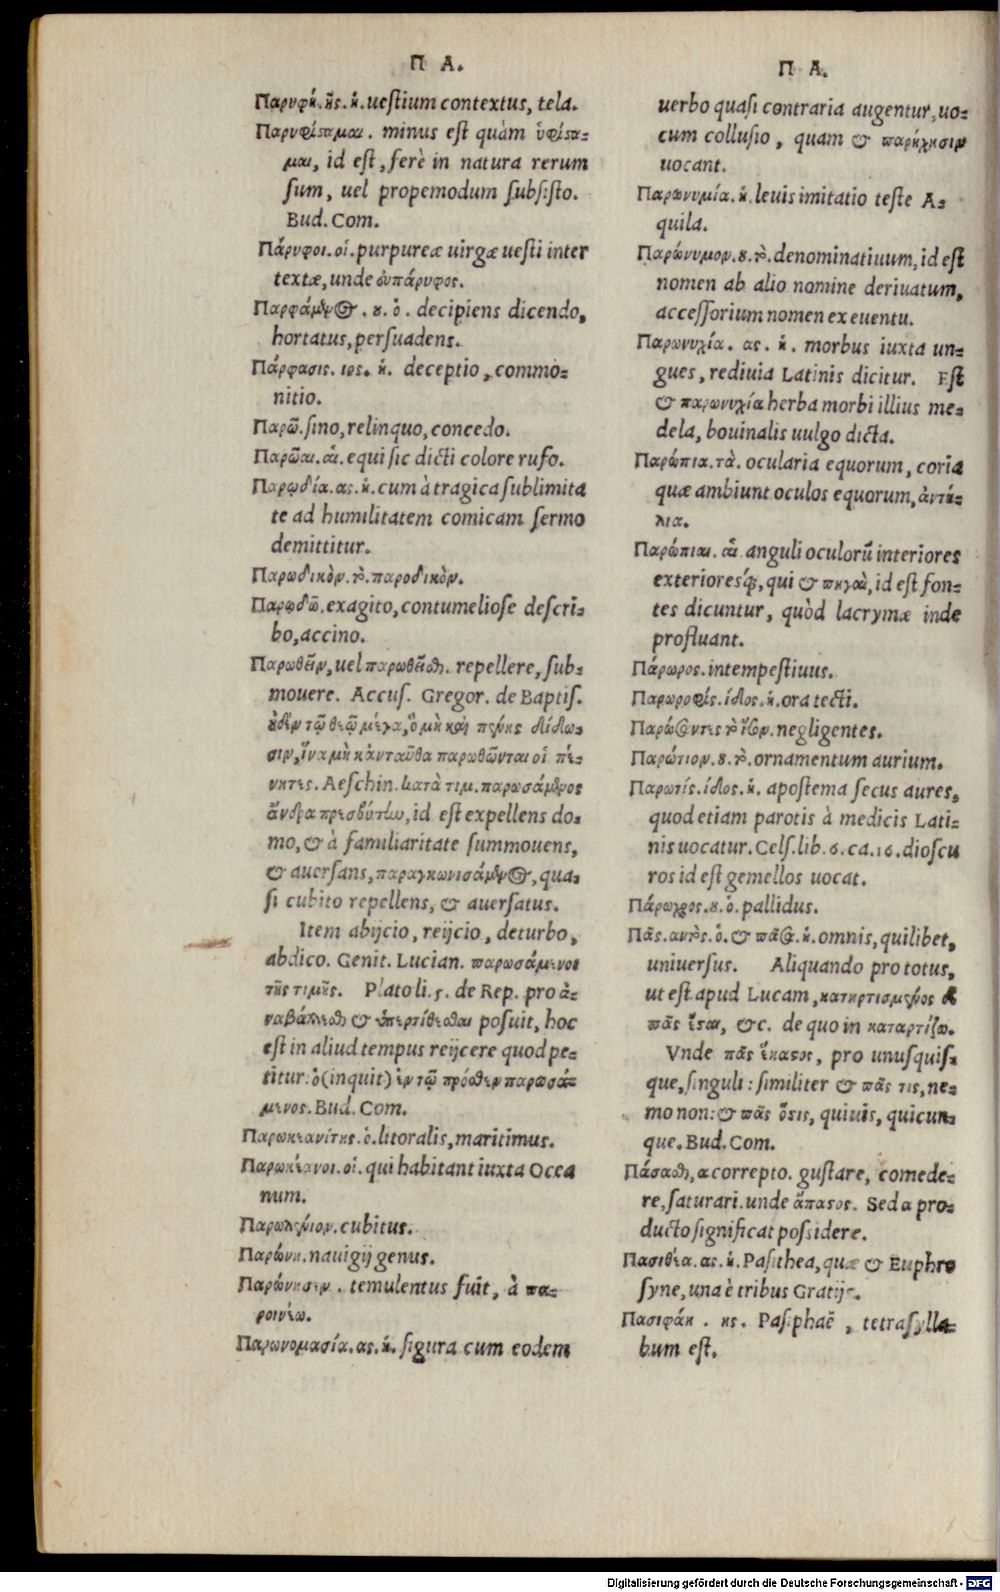 Π Α.
Παρυφὴ. ῆς. ἡ. uestium contextus, tela.
Παρυφίσταμαι. minus est quàm ὑφίστα-
μαι, id est, ferè in natura rerum
sum, uel propemodum subsisto.
Bud. Com.
Πάρυφοι. οἱ. purpureæ uirgæ uesti inter
textæ, unde εὐπάρυφος.
Παρφάμενος. ου. ὁ. decipiens dicendo,
hortatus, persuadens.
Πάρφασις. ιος. ἡ. deceptio, commo-
nitio.
Παρῶ. sino, relinquo, concedo.
Παρῶαι. αἱ. equi sic dicti colore rufo.
Παρῳδία. ας. ἡ. cum à tragica sublimita
te ad humilitatem comicam sermo
demittitur.
Παρωδικὸν. τὸ. παροδικὸν.
Παρῳδῶ. exagito, contumeliose descri-
bo, accino.
Παρωθεῖν, uel παρωθεῖσθαι. repellere, sub-
mouere. Accus. Gregor. de Baptis.
οὐδὲν τῷ θεῷ μέγα, ὃ μὴ καὶ πένης δίδω-
σιν, ἵνα μὴ κἀνταῦθα παρωθῶνται οἱ πέ-
νητες. Aeschin. κατὰ τιμ. παρωσάμενος
ἄνδρα πρεσβύτην, id est expellens do-
mo, & à familiaritate summouens,
& auersans, παραγκωνισάμενος, qua-
si cubito repellens, & auersatus.
Item abijcio, reijcio, deturbo,
abdico. Genit. Lucian. παρωσάμενος
τῆς τιμῆς. Plato li. 5. de Rep. pro ἀ-
ναβάλλεσθαι & ὑπερτίθεσθαι posuit, hoc
est in aliud tempus reijcere quod pe-
titur: ὁ (inquit) ἐν τῷ πρόσθεν παρωσά-
μενος. Bud. Com.
Παρωκεανίτης. ὁ. litoralis, maritimus.
Παρωκέανοι. οἱ. qui habitant iuxta Ocea
num.
Παρωλένιον. cubitus.
Παρώνη. nauigij genus.
Παρώνησεν. temulentus fuit, à πα-
ροινέω.
Παρωνομασία. ας. ἡ. figura cum eodem
Π Α.
uerbo quasi contraria augentur, uo-
cum collusio, quam & παρήχησιν
uocant.
Παρωνυμία. ἡ. leuis imitatio teste A-
quila.
Παρώνυμον. ου. τὸ. denominatiuum, id est
nomen ab alio nomine deriuatum,
accessorium nomen ex euentu.
Παρωνυχία. ας. ἡ. morbus iuxta un-
gues, rediuia Latinis dicitur. Est
& παρωνυχία herba morbi illius me-
dela, bouinalis uulgo dicta.
Παρώπια. τὰ. ocularia equorum, coria
quæ ambiunt oculos equorum, ἀντή-
λια.
Παρώπιαι. αἱ anguli oculorũ interiores
exterioresq́;, qui & πηγαὶ, id est fon-
tes dicuntur, quòd lacrymæ inde
profluant.
Πάρωρος. intempestiuus.
Παρωροφὶς. ίδος. ἡ. ora tecti.
Παρώσαντες τὸ ζῶον. negligentes.
Παρώτιον. ου. τὸ. ornamentum aurium.
Παρωτίς. ίδος. ἡ. apostema secus aures,
quod etiam parotis à medicis Lati-
nis uocatur. Cels. lib. 6. ca. 16. dioscu
ros id est gemellos uocat.
Πάρωχρος. ου. ὁ. pallidus.
Πᾶς. αντὸς. ὁ. & πᾶσα. ἡ. omnis, quilibet,
uniuersus. Aliquando pro totus,
ut est apud Lucam, κατηρτισμένος δὲ
πᾶς ἔσται, &c. de quo in καταρτίζω.
Vnde πᾶς ἕκαστος, pro unusquis-
que, singuli: similiter & πᾶς τις, ne-
mo non: & πᾶς ὅστις, quiuis, quicun-
que. Bud. Com.
Πάσασθαι, α correpto. gustare, comede-
re, saturari. unde ἄπαστος. Sed α pro-
ducto significat possidere.
Πασιθέα. ας. ἡ. Pasithea, quæ & Euphro
syne, una è tribus Gratijs.
Πασιφάη. ης. Pasiphaë, tetrasylla-
bum est.
Digitalisierung gefördert durch die Deutsche Forschungsgemeinschaft - DFG